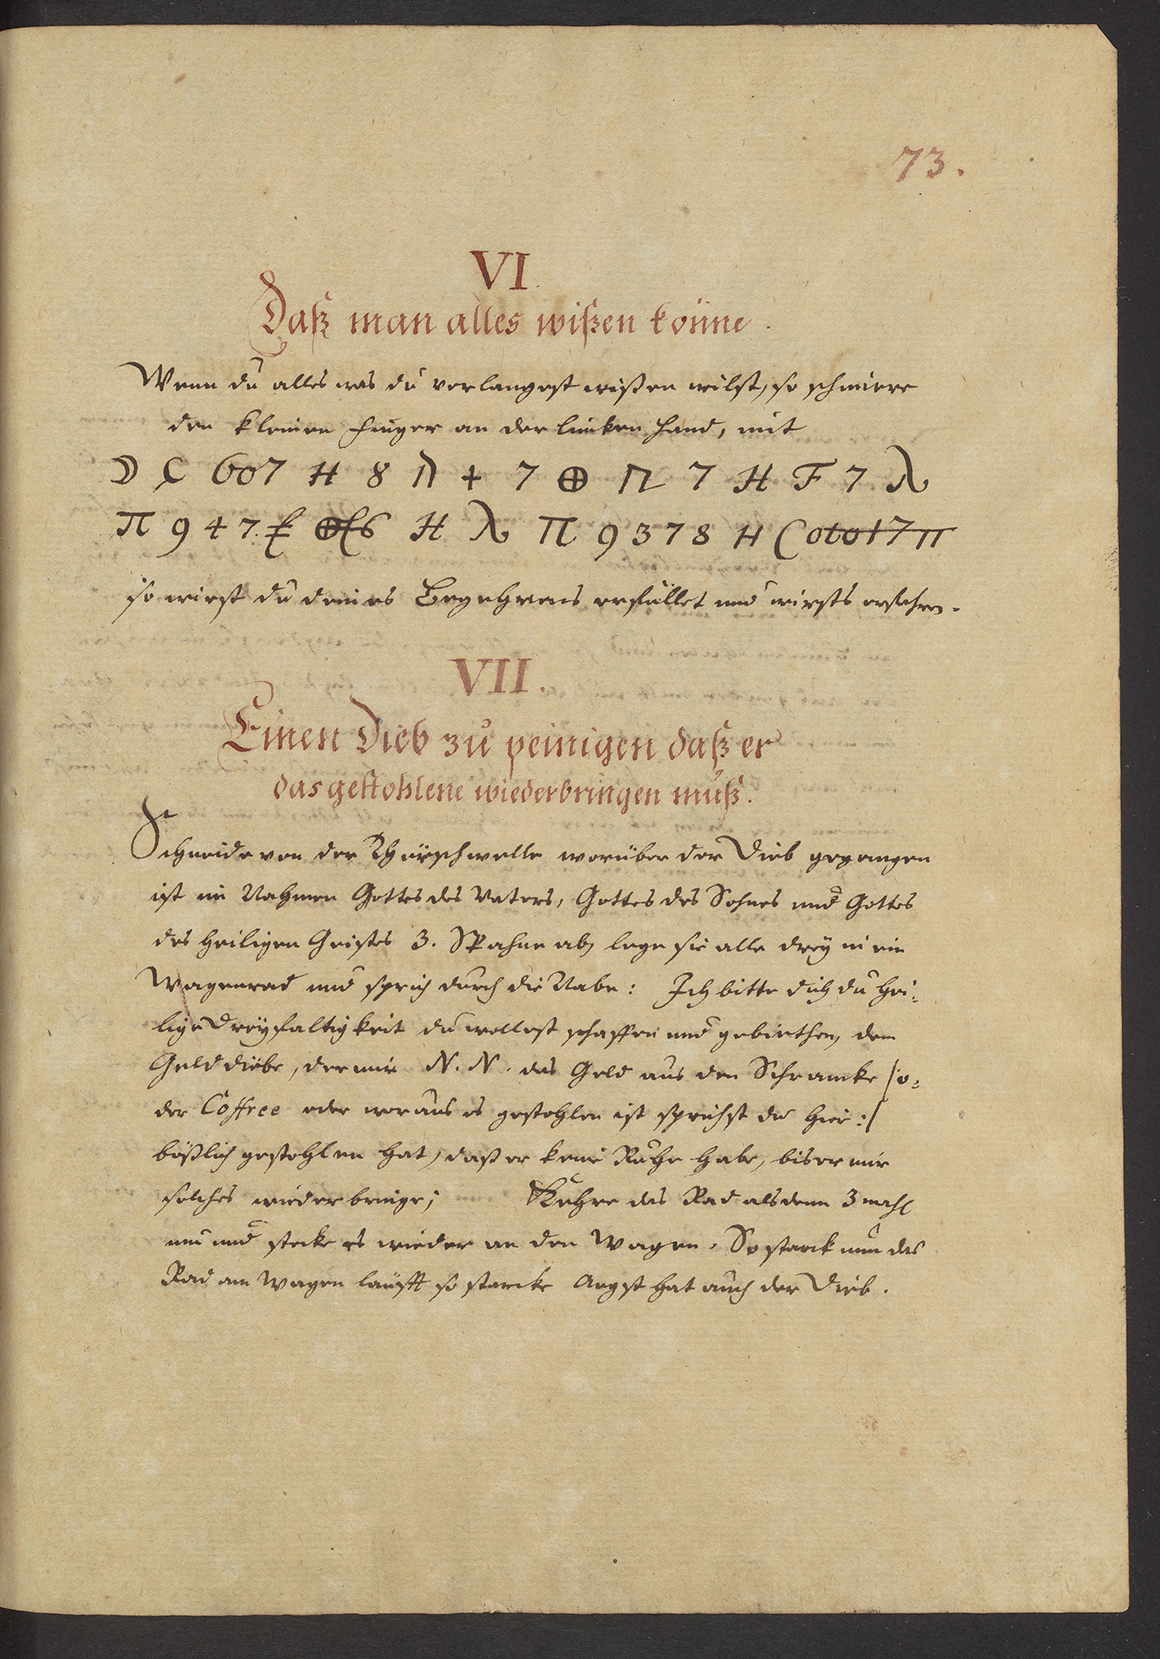 73.
VI.
Daß man alles wißen könne.
Wenn du alles was du verlangest wißen wilst, so schmiere
den kleinen Finger an der lincken Hand, mit
607 H 8 + 7 ⊕ 7 H F 7 λ
π 9 4 7. H λ π 9 3 7 8 H
so wirst du deines Begehrens erfüllet und wirsts erfahren.
VII.
Einen Dieb zu peinigen daß er
das gestohlene wiederbringen muß.
Schneide von der Thürschwelle worüber der Dieb gegangen
ist im Nahmen Gottes des Vaters, Gottes des Sohnes und Gottes
des Heiligen Geistes 3. Spahne ab, lege sie alle drey in ein
Wagenrad und sprich durch die Nabe: Ich bitte dich du Hei-
lige Dreyfaltigkeit du wollest schaffen und gebiethen, dem
Geld diebe, der mir N. N. das Geld aus den Schrancke /: o-
der Coffree oder woraus es gestohlen ist sprichst du hier :/
bößlich gestohlen hat, daß er keine Ruhe habe, bis er mir
solches wiederbringe; Kehre das Rad alsdenn 3 mahl
um und stecke es wieder an den Wagen. So starck nun das
Rad am Wagen läufft so starcke Angst hat auch der Dieb.